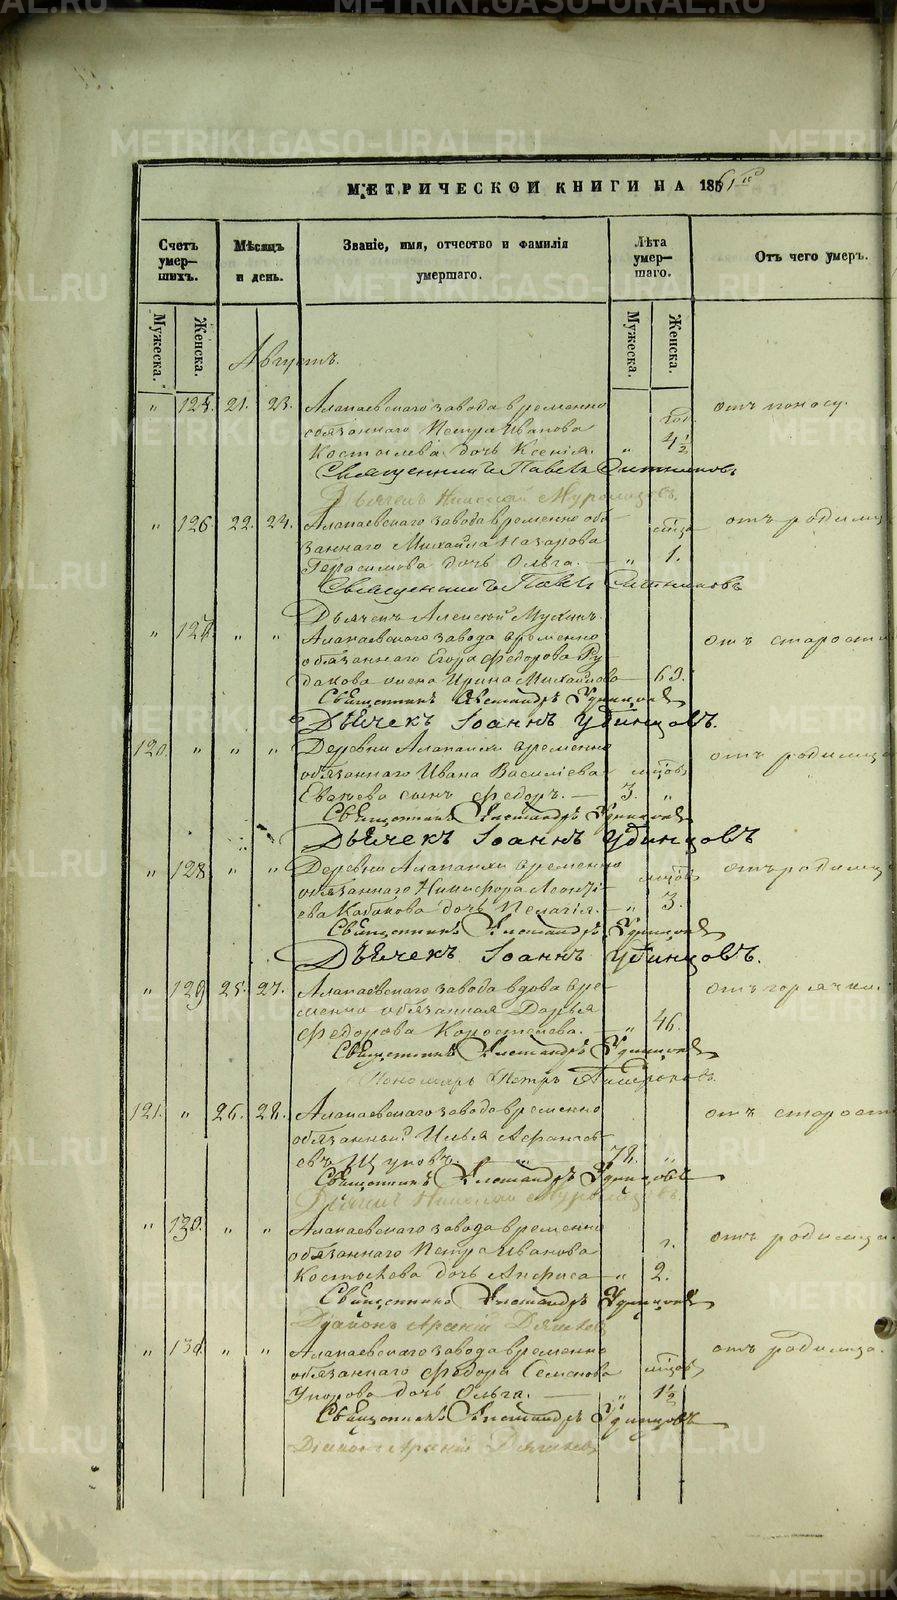 МЕТРИЧЕСКОЙ КНИГИ НА 1861 й
Счетъ умер-шихъ.
Мѣсяцъ и день.
Званіе, имя, отчество и фамилія умершаго.
Лѣта умер-шаго.
Отъ чего умеръ.
Мужеска.
Женска.
Мужеска.
Женска.
Августъ.
" 125. 21. 23. Алапаевскаго завода временно отъ поносу.
обязаннаго Петра Иванова год.
Костылева дочь Ксенія. " 4½
Священникъ Павелъ Ситниковъ
Дьячекъ Николай Муромцовъ.
" 126. 22. 24. Алапаевскаго завода временно обя- отъ родимца
заннаго Михаила Назарова
Герасимова дочь Ольга. — " 1.
Священникъ Павелъ Ситниковъ
Дьячекъ Алексей Мухинъ.
" 127. " " Алапаевскаго завода временно отъ старости
обязаннаго Егора Федорова Ру-
дакова жена Ирина Михайлова — 63.
Священникъ Александръ Удинцовъ
Дьячекъ Іоаннъ Удинцовъ.
120. " " " Деревни Алапаихи временно отъ родимца
обязаннаго Ивана Васильева мѣсяцовъ
сынъ Федоръ. — 3. "
Священникъ Александръ Удинцовъ
Дьячекъ Іоаннъ Удинцовъ
" 128 " " Деревни Алапаихи временно отъ родимца
обязаннаго Никифора Леонті-
ева Кабакова дочь Пелагія. — " 3.
Священникъ Александръ Удинцовъ
Дьячекъ Іоаннъ Удинцовъ.
" 129 25. 27. Алапаевскаго завода вдова вре- отъ горячки.
менно обязанная Дарья
Федорова Коростелева. — " 46.
Священникъ Александръ Удинцовъ
Пономарь Петръ
121. " 26. 28. Алапаевскаго завода временно отъ старости
обязанный Илья Афанась-
евъ Щуповъ. — 78. "
Священникъ Александръ Удинцовъ
Дьячекъ Николай Муромцовъ.
" 130. " " Алапаевскаго завода временно отъ родимца.
обязаннаго Петра Иванова г.
Костылева дочь Анфиса — " 2.
Священникъ Александръ Удинцовъ
Діаконъ Арсеній Дягилевъ
" 131 " " Алапаевскаго завода временно отъ родимца.
обязаннаго Федора Семенова мѣсяцовъ
Упорова дочь Ольга. — " 1½
Священникъ Александръ Удинцовъ
Діаконъ Арсеній Дягилевъ
METRIKI.GASO-URAL.RU